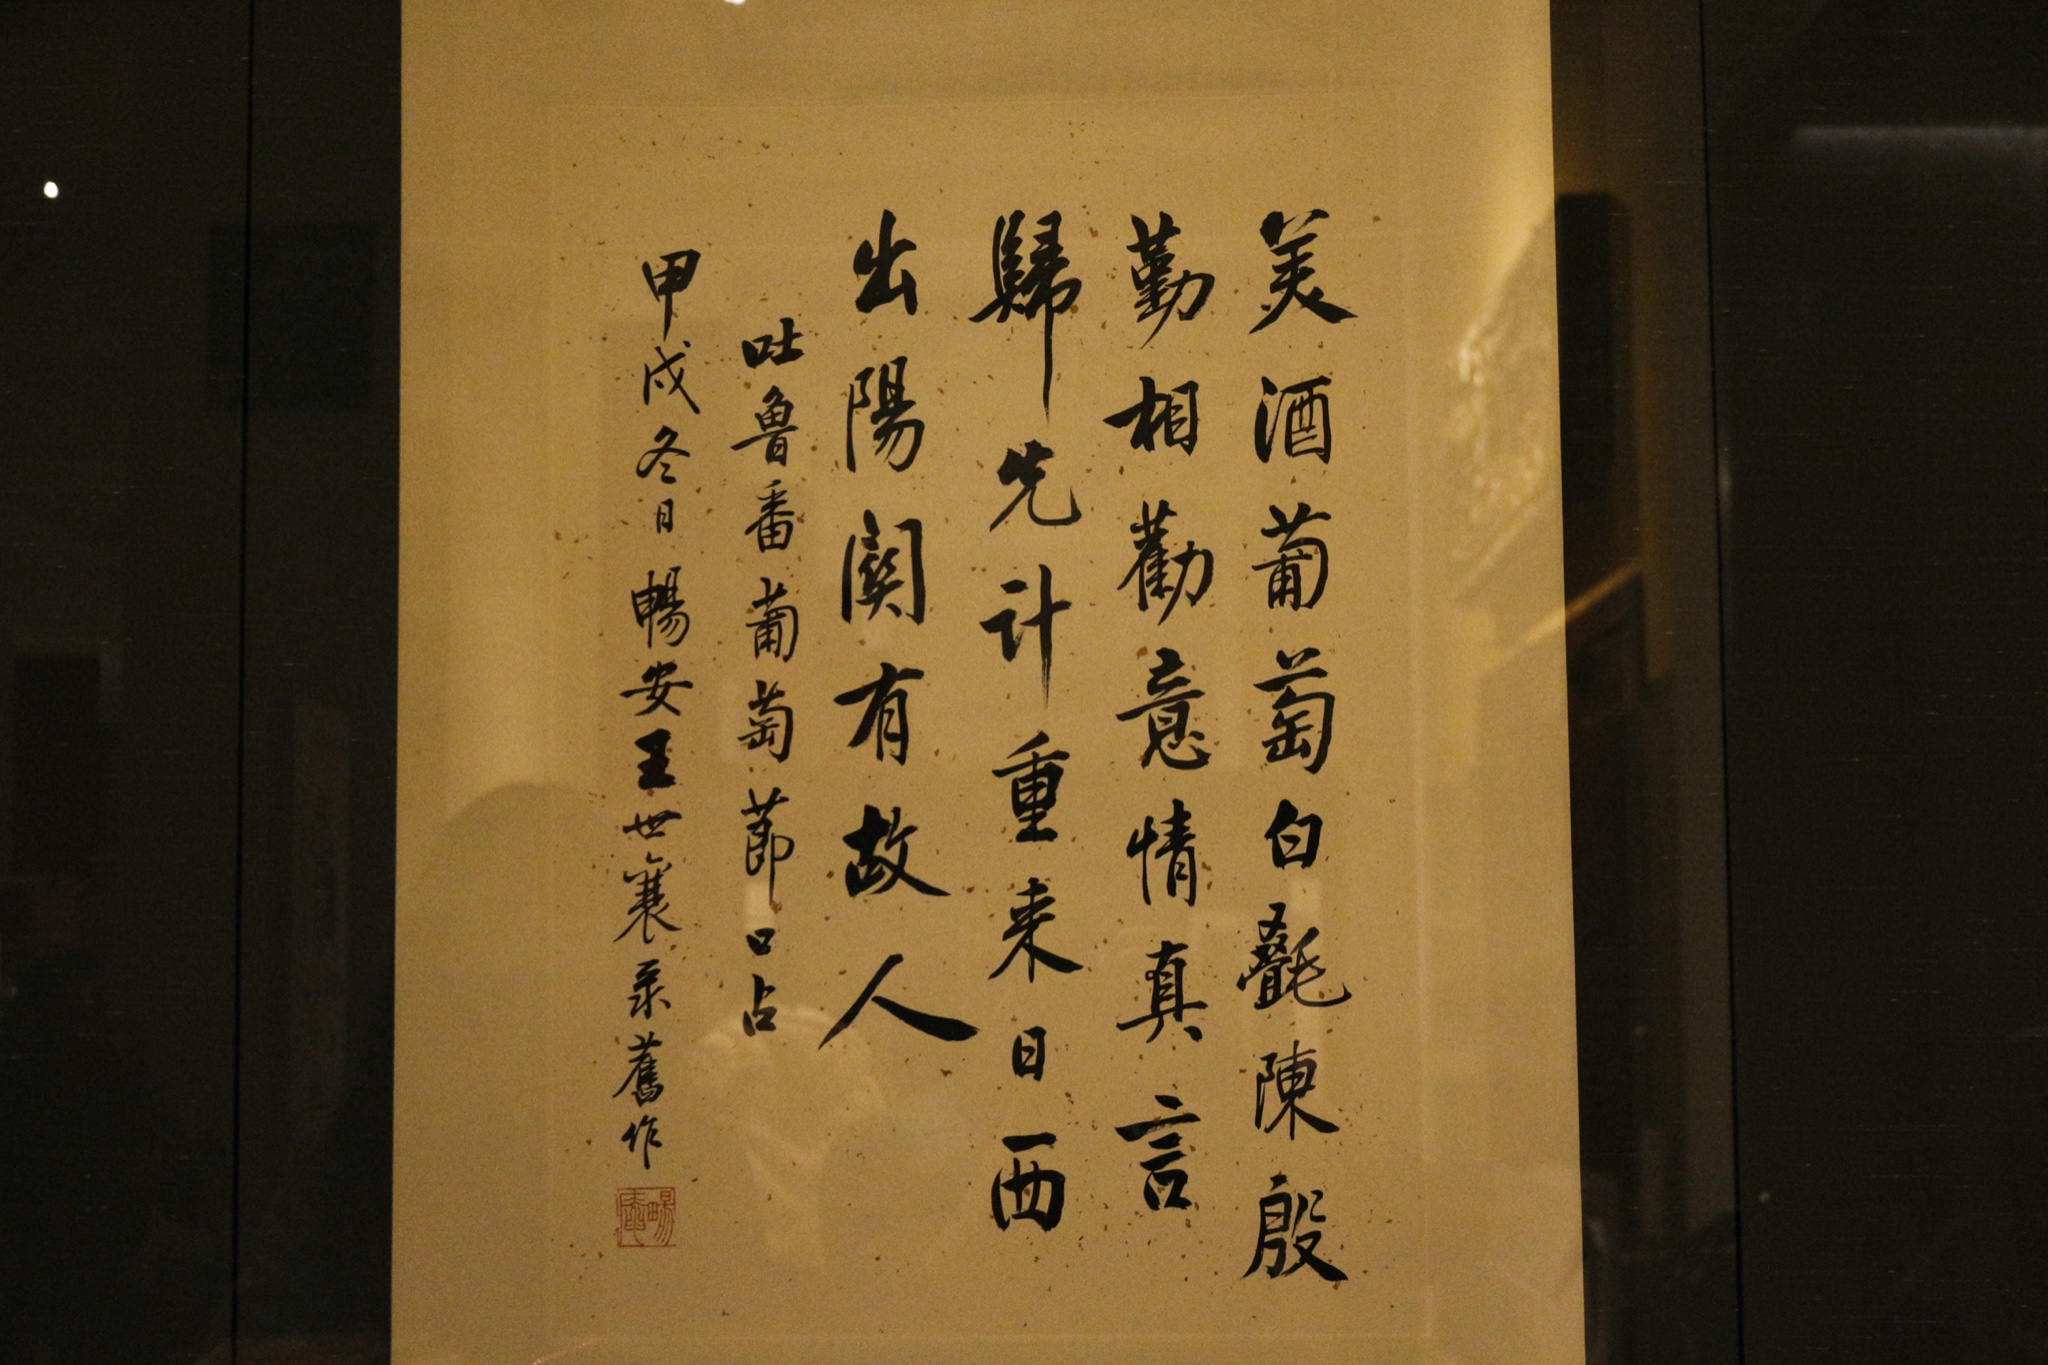 美酒葡萄白氎陳殷
勤相勸意情真言
歸先計重来日西
出陽關有故人
吐魯番葡萄節口占
甲戌冬日暢安王世襄录舊作